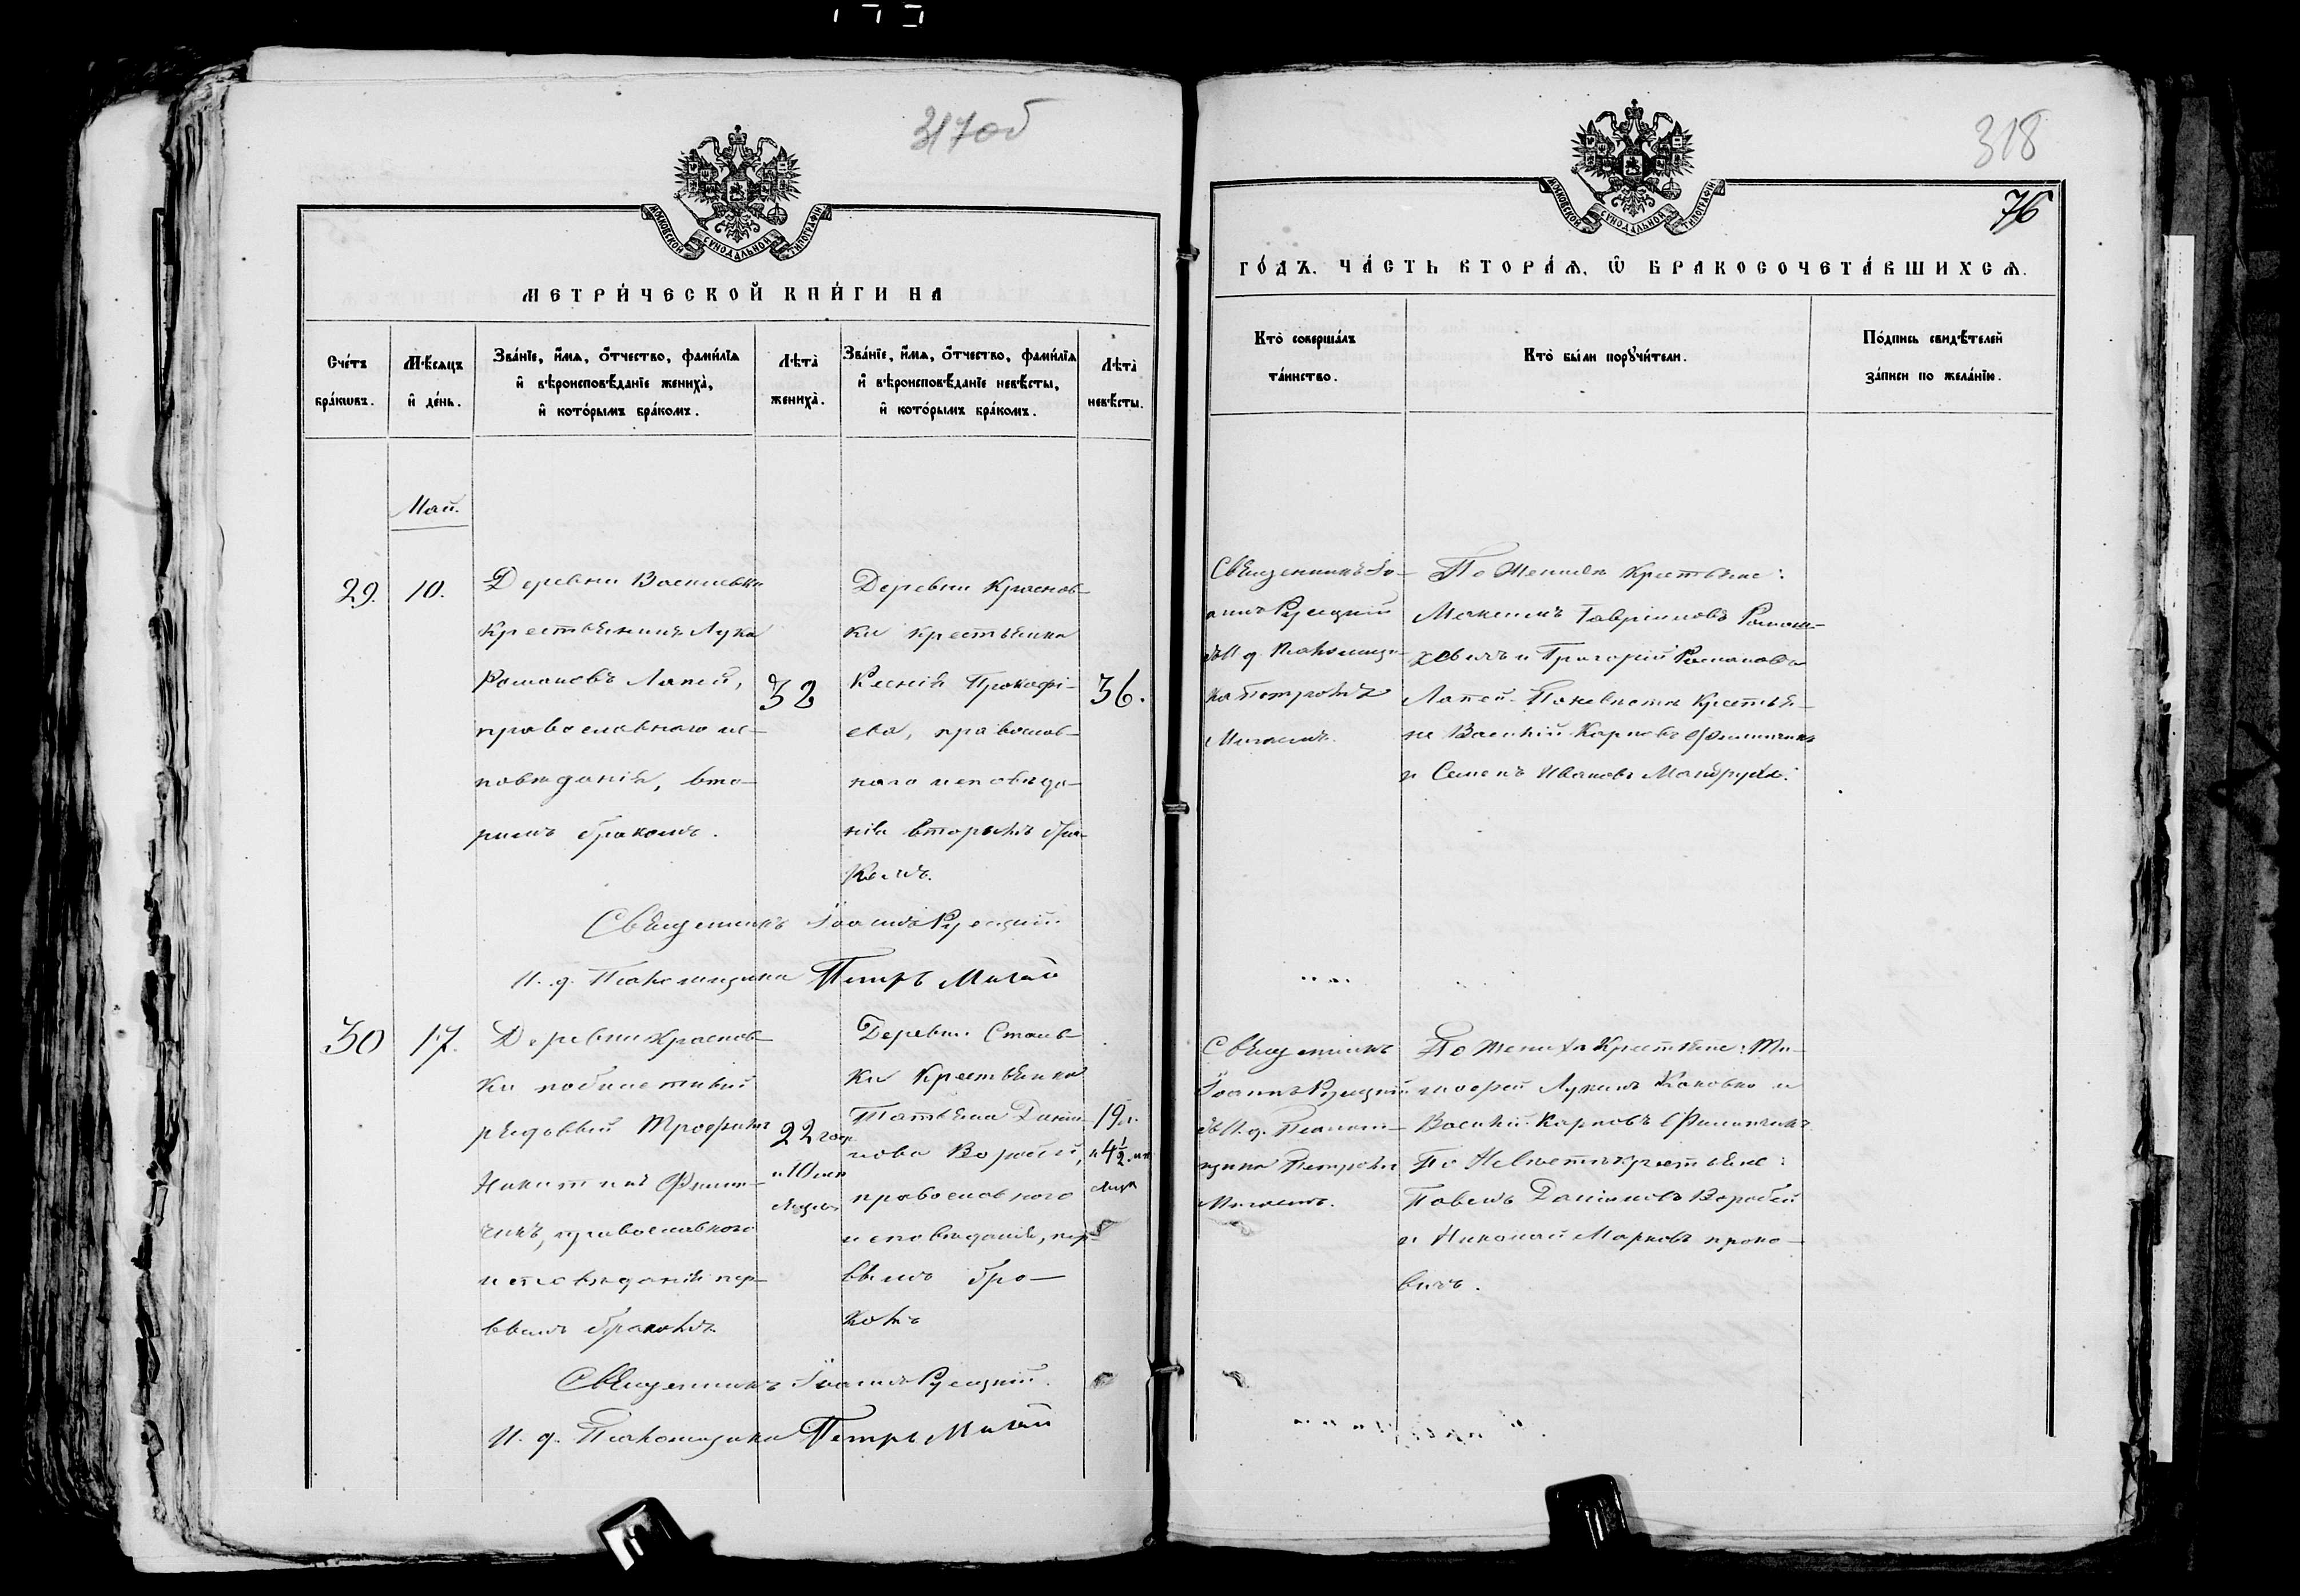 317об
МОСКОВСКОЙ СѴНОДАЛЬНОЙ ТИПОГРАФІИ
МЕТРИ́ЧЕСКОЙ КНИ́ГИ НА
Сче́тъ бра́кωвъ.
Мѣ́сяцъ и҆ де́нь.
Зва́нїе, и҆́мѧ, ѻ҆́тчество, фами́лїѧ
и҆ вѣроисповѣ́данїе жениха̀,
и҆ кото́рымъ бра́комъ.
Лѣта̀ жениха̀.
Зва́нїе, и҆́мѧ, ѻ҆́тчество, фами́лїѧ
и҆ вѣроисповѣ́данїе невѣ́сты,
и҆ кото́рымъ бра́комъ.
Лѣта̀ невѣ́сты.
Май.
29.
10.
Деревни Василевки
Крестьянинъ Лука
Романовъ Лапей,
православнаго ис-
повѣданія, вто-
рымъ бракомъ.
32
Деревни Краснов-
ки крестьянка
Ксенія Прокофі-
ева, православ-
наго исповѣда-
нія вторымъ бра-
комъ.
36.
Священникъ Іоаннъ Русецкій.
И. д. Псаломщика Петръ Мигай
30
17.
Деревни Краснов-
ки
рядовый Трофимъ
Никитинъ Филип-
чикъ, православнаго
исповѣданія пер-
вымъ бракомъ.
22 года
и 10 мѣ
сяцевъ
Деревни Став-
ки Крестьянка
Татьяна Дані-
лова Воробей,
православнаго
исповѣданія, пер-
вымъ бра-
комъ
19 л.
и 4½ мѣ
сяца
Священникъ Іоаннъ Русецкій.
И. д. Псаломщика Петръ Мигай
318
76
МОСКОВСКОЙ СѴНОДАЛЬНОЙ ТИПОГРАФІИ
ГО́ДЪ. ЧА́СТЬ ВТОРА́Ѧ, Ѡ҆ БРАКОСОЧЕТА́ВШИХСѦ.
Кто̀ соверша́лъ
та́инство.
Кто̀ бы́ли порꙋчи́тели.
По́дпись свидѣ́телей
за́писи по жела́нїю.
Священникъ Іо-
аннъ Русецкій
съ И. д. Псаломщи-
ка Петромъ
Мигаемъ.
По Женихѣ крестьяне:
Максимъ Гавріиловъ
и Григорій Романовъ
Лапей. По невѣстѣ Крестья-
не Василій Карповъ Филипчикъ
и Семенъ Ивановъ
Священникъ
Іоаннъ Русецкій
съ И. д. Псалом-
щика Петромъ
Мигаемъ.
По Женихѣ Крестьяне: Ти-
мофей Лукинъ и
Василій Карповъ Филипчикъ
По Невѣстѣ крестьяне:
Павелъ Даніиловъ Воробей
и Николай Марковъ Проко-
вичъ.